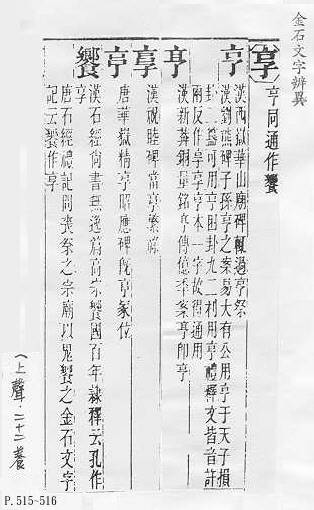 金石文字辨異
享 亨同通作饗
亨 漢西嶽華山廟碑輒過亨祭
漢劉熊碑子孫亨之案易大有公用亨于天子損
卦二簋可用亨困卦九二利用亨禮釋文皆音許
兩反作享享亨本一字故得通用
亨 漢新莽銅量銘亨傳億年案亨即亨
享 漢祝睦碑當享繁祉
亨 唐華嶽精亨昭應碑既亨家位
饗 漢石經尚書無逸篇高宗饗國百年隸釋云孔作
享
唐石經禮記問喪祭之宗廟以鬼饗之金石文字
記云饗作享
(上聲·二十二養)
P.515-516